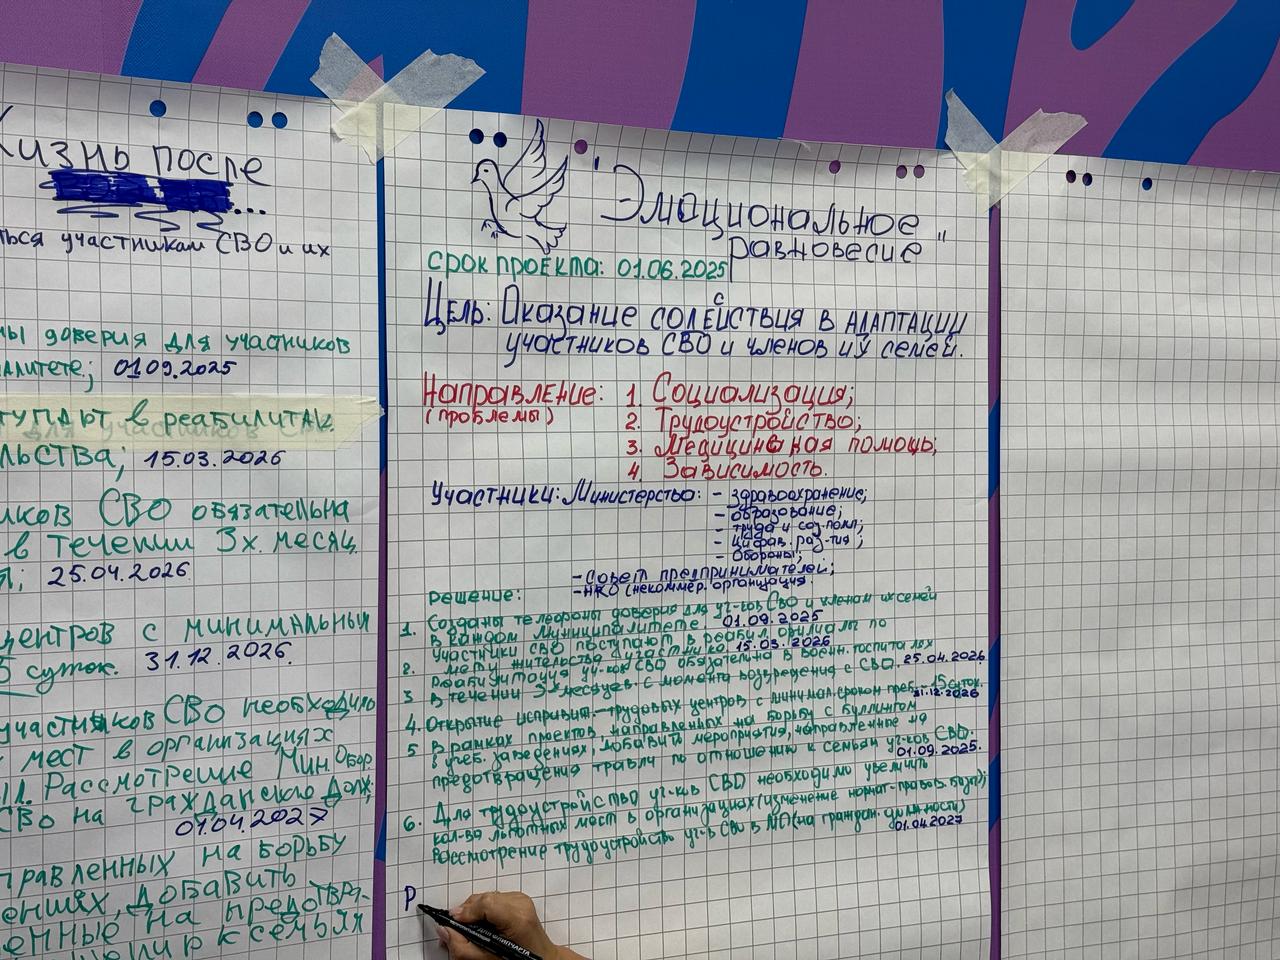 Жизнь после
...
ться участникам СВО и их
доверия для участников
01.09.2025
в реабилитац.
льства; 15.03.2026
СВО обязательна
в течении 3х месяц.
25.04.2026
центров с минимальным
5 суток. 31.12.2026.
участников СВО необходимо
мест в организациях
Рассмотрение Мин. Обор.
СВО на гражданск. долж.
01.04.2027
правленных на борьбу
ениях, добавить
енные на предотвра-
к семьям
"Эмациональное
равновесие"
Срок проекта: 01.06.2025
Цель: Оказание содействия в адаптации
с
участников СВО и членов их семей.
Направление: 1. Социализация;
(проблемы) 2. Трудоустройство;
3. Медицинская помощь;
4. Зависимость.
Участники: Министерство: - здравоохранение;
- образование;
- труда и соц. пол.;
- цифров. раз-тия;
- Обороны;
- Совет предпринимателей;
- НКО (некоммер. организация.
Решение:
1. Созданы телефоны доверия для уч-ков СВО и членом их семей
в каждом муниципалитете. 01.09.2025
2. Участники СВО поступают в реабил. филиалы по
месту жительства участника. 15.03.2026
3 Реабилитация уч-ков СВО обязательна в воен. госпиталях
в течении 3х месяцев с момента возвредения с СВО. 25.04.2026
4. Открытие исправит.-трудовых центров с минимал. сроком преб. - 15 суток.
31.12.2026
5 В рамках проектов, направленных на борьбу с буллингом
в учеб. заведениях, добавить мероприятия, направленные на
предотвращения травли по отношению к семьям уч-ков СВО.
01.09.2025.
6. Для трудоустройства уч-ков СВО необходимо увеличить
кол-во льготных мест в организациях (изменение нормат-правов. базы);
Рассмотрение трудоустройства уч-в СВО в МО (на граждан. должности)
01.04.2027
Р